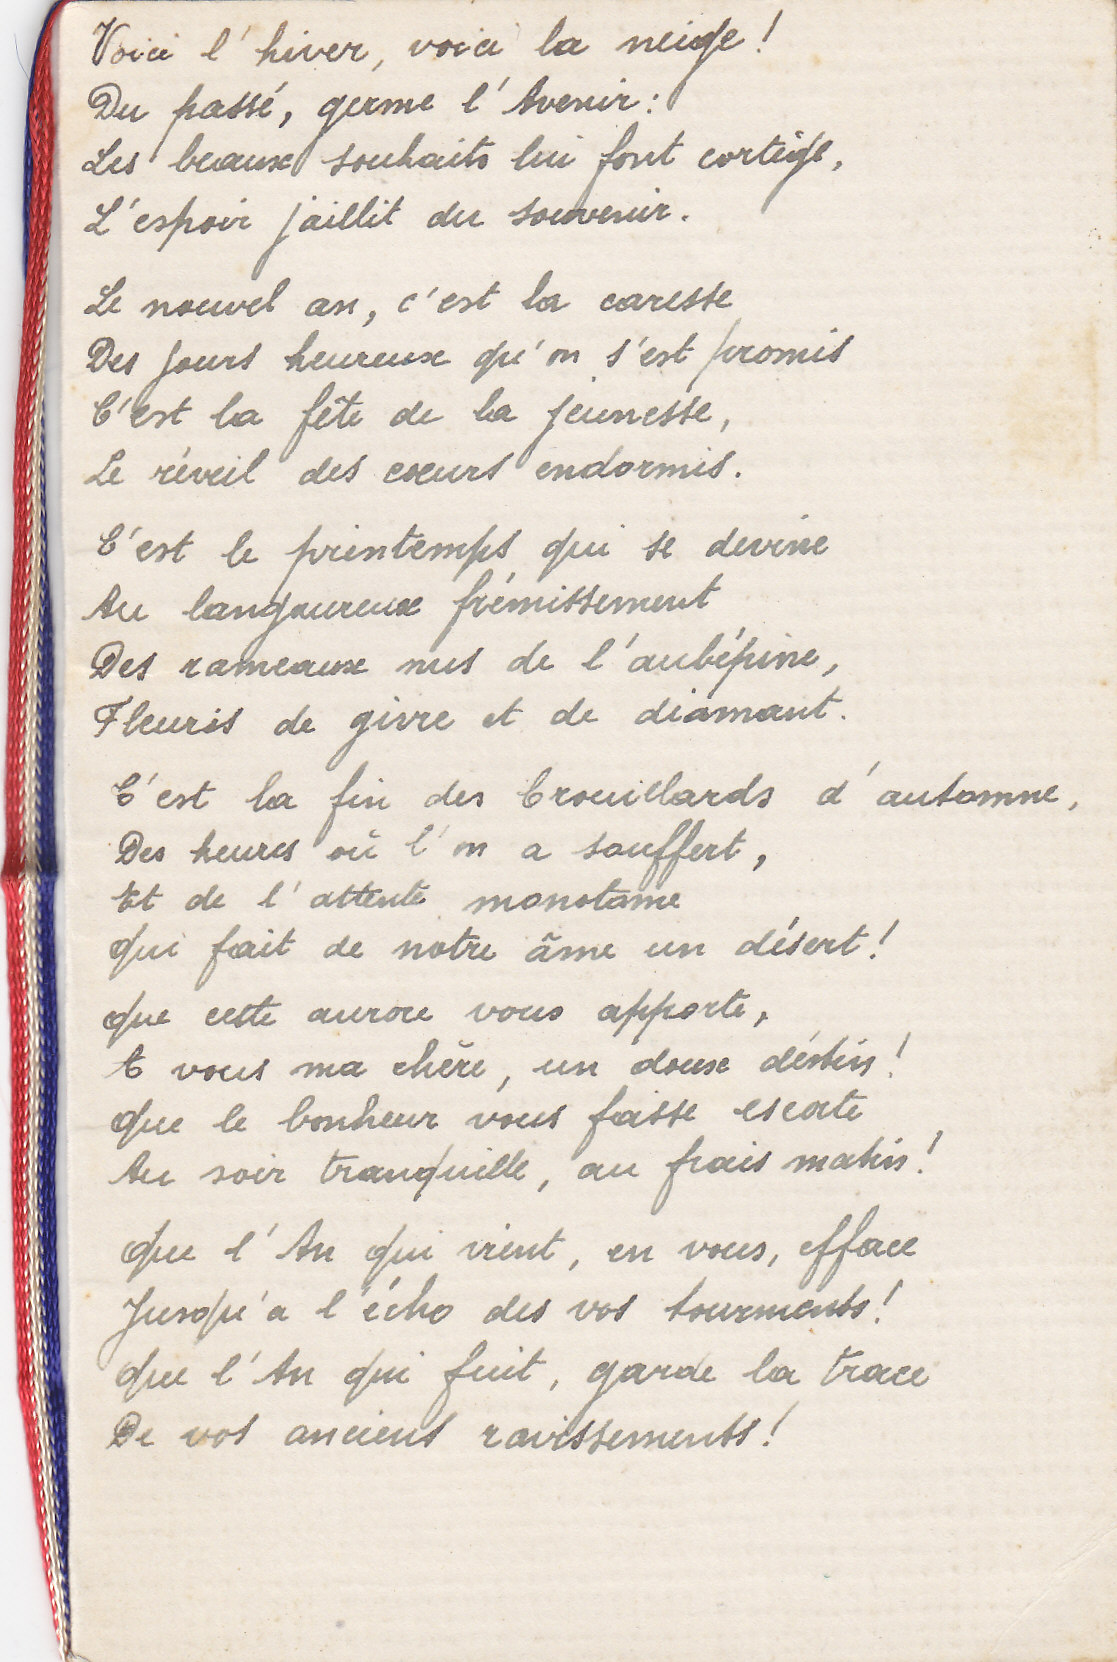 Voici l'hiver, voici la neige!
Du passé, germe l'Avenir:
Les beaux souhaits lui font cortège,
L'espoir jaillit du souvenir.
Le nouvel an, c'est la caresse
Des jours heureux qu'on s'est promis
C'est la fête de la jeunesse,
Le réveil des coeurs endormis.
C'est le printemps qui se devine
Au langoureux frémissement
Des rameaux nus de l'aubépine,
Fleuris de givre et de diamant.
C'est la fin des brouillards d'automne,
Des heures où l'on a souffert,
Et de l'attente monotome
Qui fait de notre âme un désert!
Que cette aurore vous apporte,
A vous ma chère, un doux déstin!
Que le bonheur vous fasse escorte
Au soir tranquille, au frais matin!
Que l'An qui vient, en vous, efface
Jusqu'a l'écho des vos tourments!
Que l'An qui fuit, garde la trace
De vos anciens ravissements!